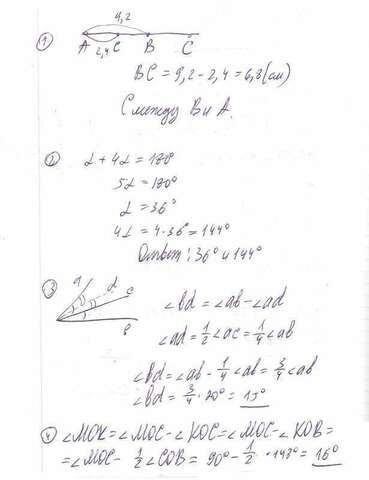 9,2
① A C B C
2,4
BC = 9,2 - 2,4 = 6,8 (см)
C между B и A.
② α + 4α = 180°
5α = 180°
α = 36°
4α = 4·36° = 144°
Ответ: 36° и 144°
③ a d c b
∠bd = ∠ab - ∠ad
∠ad = 1/2 ∠ac = 1/4 ∠ab
∠bd = ∠ab - 1/4 ∠ab = 3/4 ∠ab
∠bd = 3/4 · 20° = 15°
④ ∠MOK = ∠MOC - ∠KOC = ∠MOC - ∠KOB =
= ∠MOC - 1/2 ∠COB = 90° - 1/2 · 148° = 16°